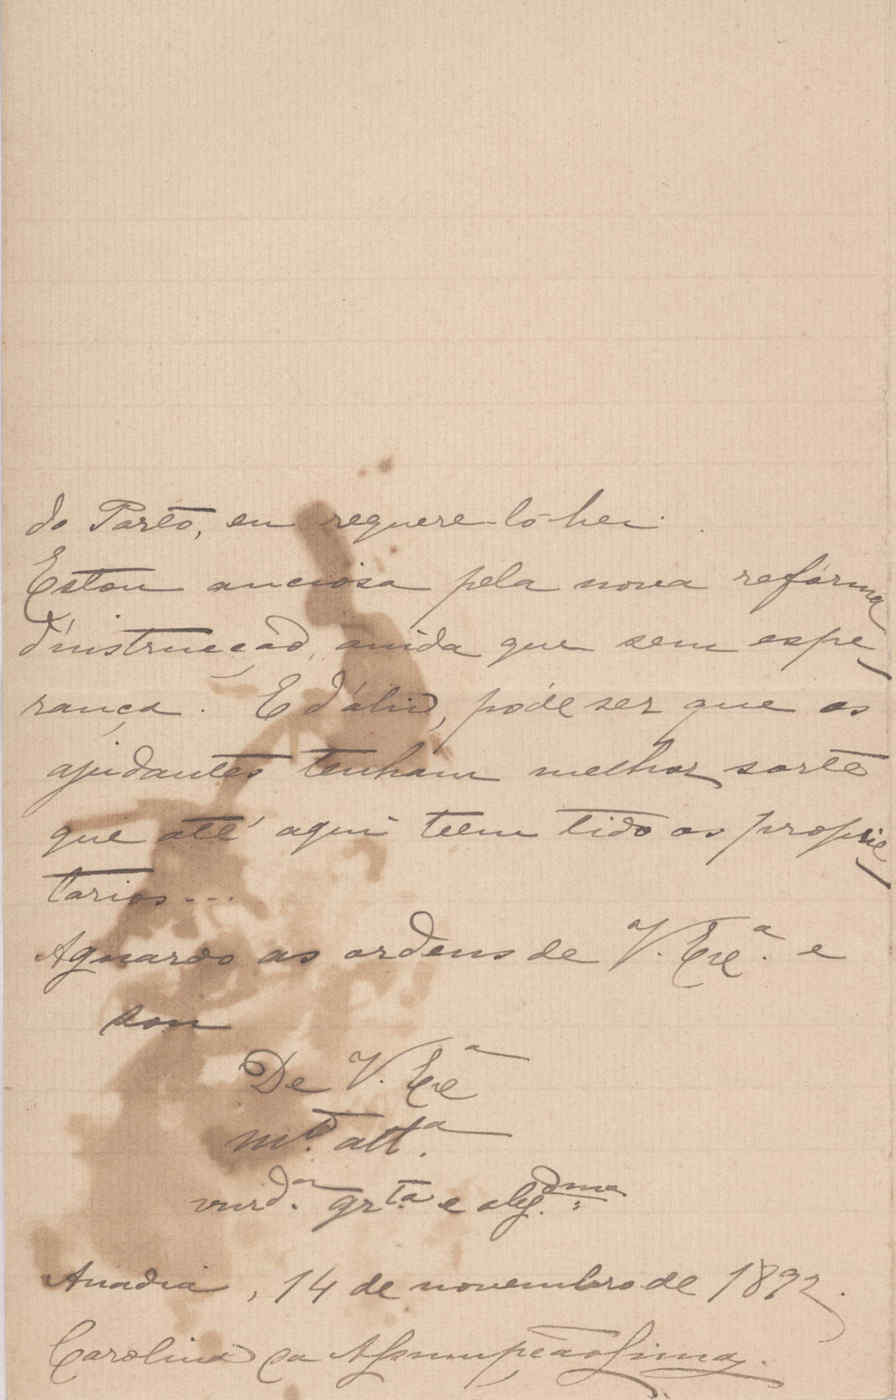 do Porto, eu requere-lo-hei.
Estou anciosa pela nova refórma
d'instrucção, ainda que sem espe-
rança. E d'ahi, póde ser que os
ajudantes tenham melhor sorte
que até aqui teem tido os proprie-
tarios...
Aguardo as ordens de V. Exª. e
sou
De V. Exª
mtº. attª.
venrdª. grtª. e obgdma.
Anadia, 14 de novembro de 1892.
Carolina da Assumpção Lima.